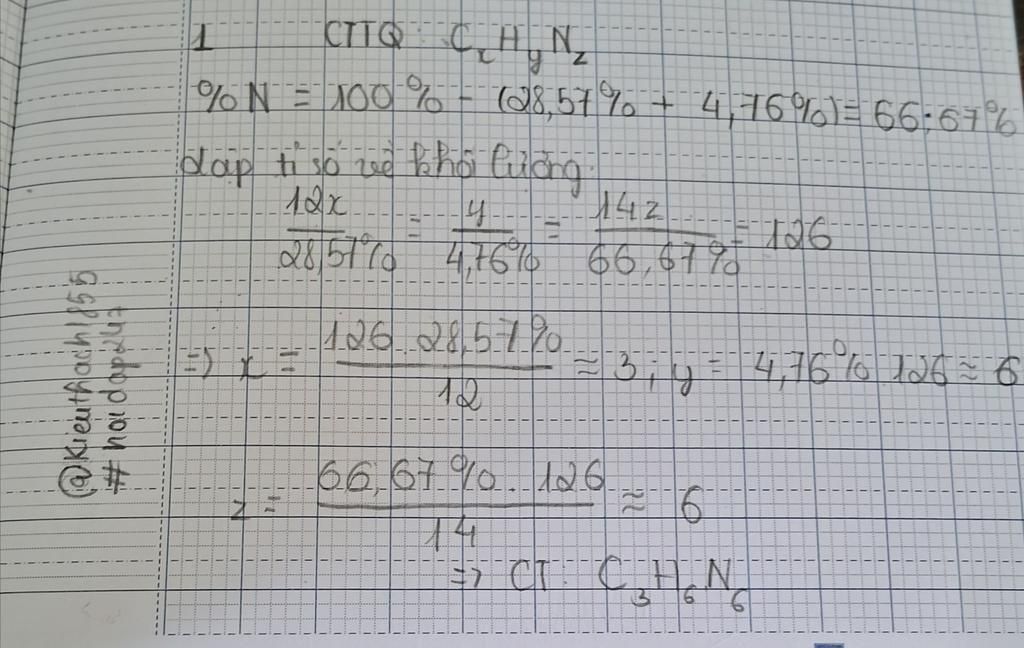 1 CTTQ: CxHyNz
%N = 100% - (28,57% + 4,76%) = 66,67%
Lập tỉ số về khối lượng:
12x/28,57% = y/4,76% = 14z/66,67% = 126
=> x = 126.28,57%/12 ≈ 3; y = 4,76%.126 ≈ 6
z = 66,67%.126/14 ≈ 6
=> CT: C3H6N6
@Kieuthach1855
# hoidap247